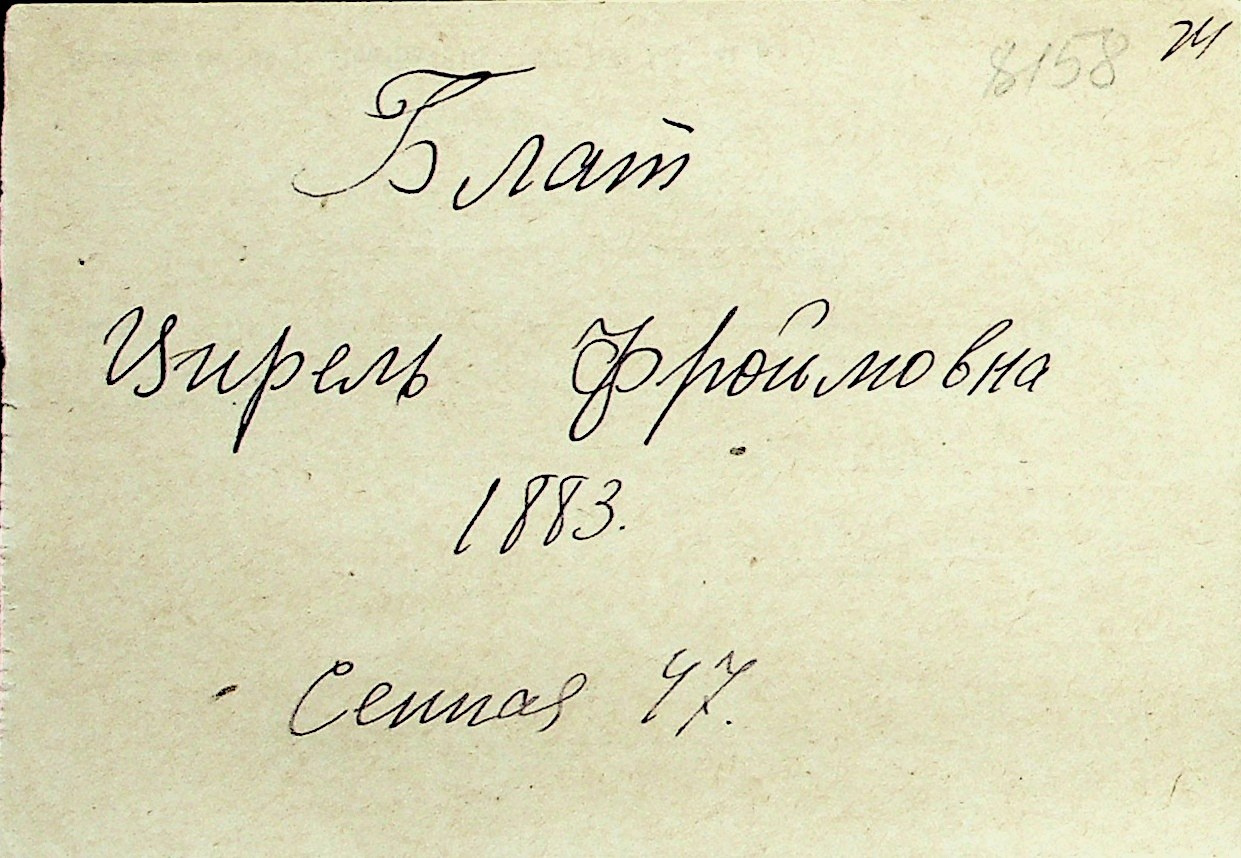 8158
Блат
Цирель Фроймовна
1883.
Сенная 47.